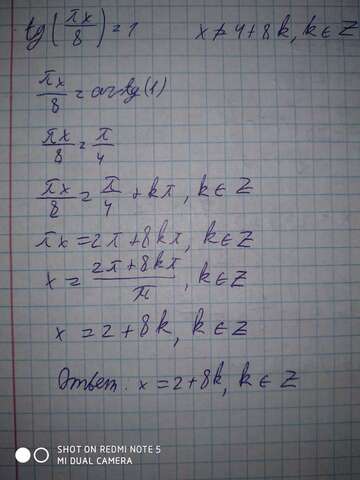 tg(πx/8)=1 x≠4+8k, k∈Z
πx/8=arctg(1)
πx/8=π/4
πx/8=π/4+kπ, k∈Z
πx=2π+8kπ, k∈Z
x=(2π+8kπ)/π, k∈Z
x=2+8k, k∈Z
Ответ: x=2+8k, k∈Z
SHOT ON REDMI NOTE 5
MI DUAL CAMERA